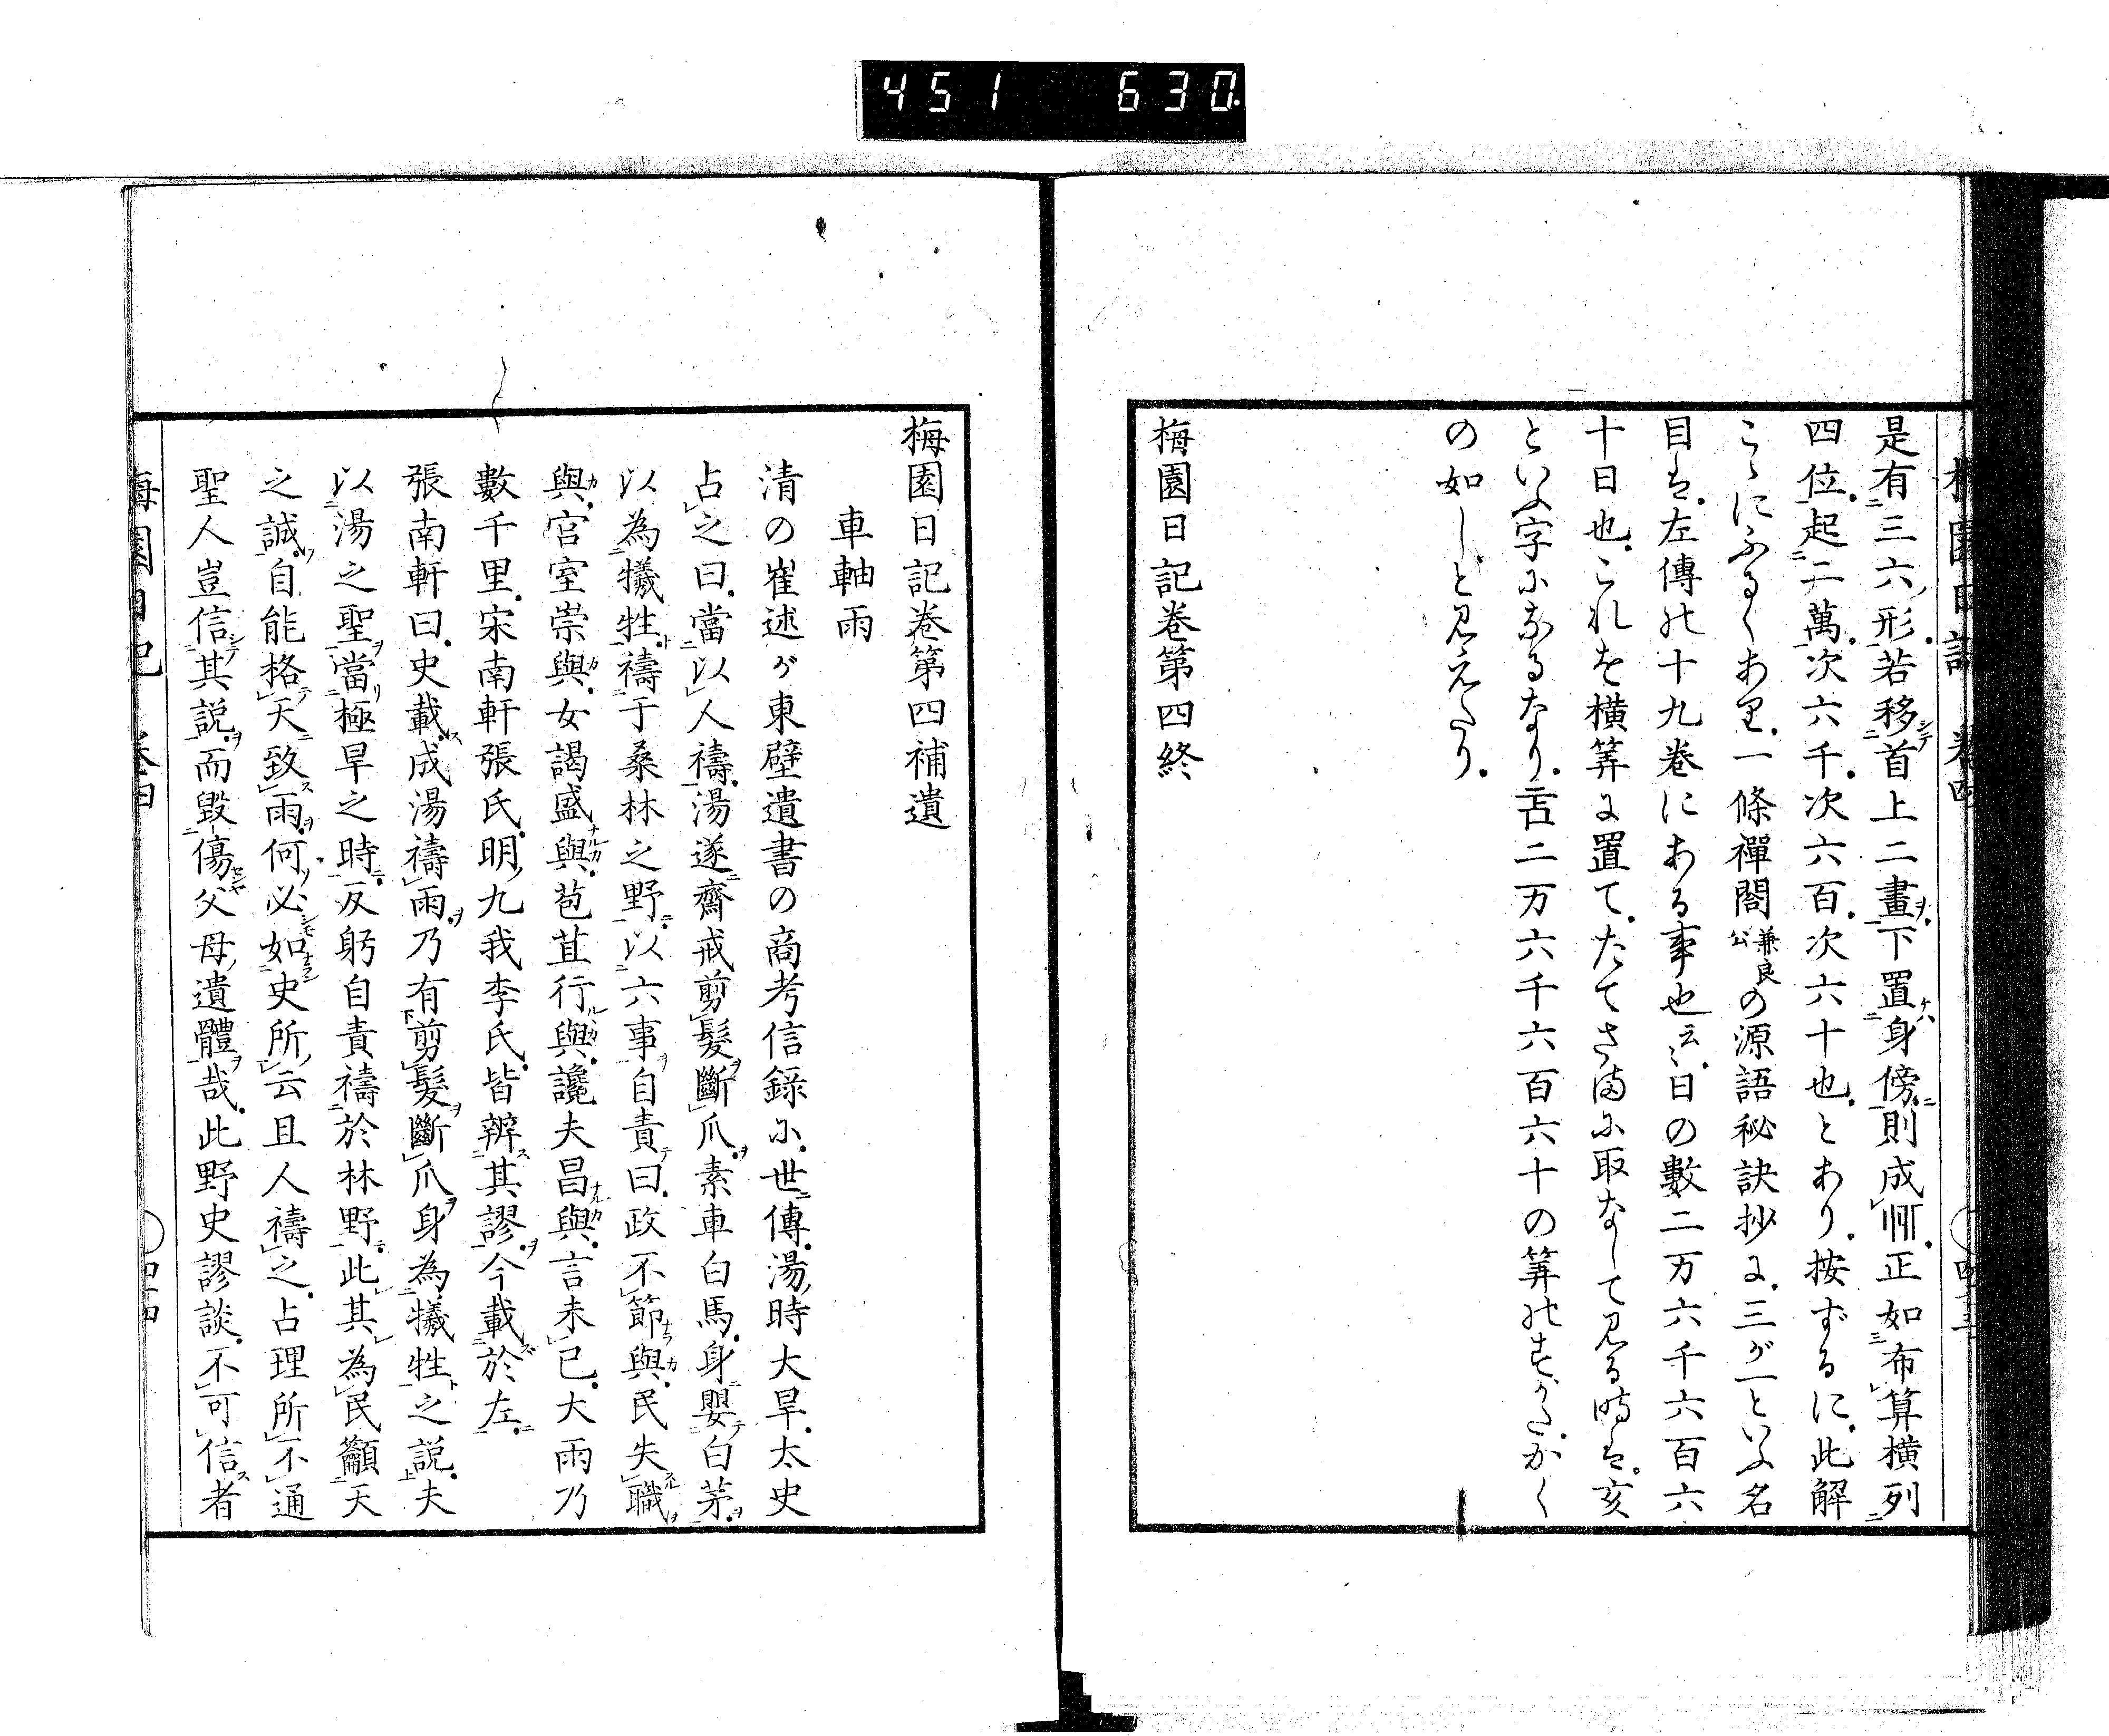 451 630
是有三六形若移首上二畫下置身傍則成𠀍正如布算橫列
四位起二萬次六千次六百次六十也とあり按ずるに此解
こゝにふるくあり一條禪閤兼良公の源語秘訣抄に三が一といふ名
目は左傳の十九卷にある事也云〻日の數二万六千六百六
十日也これを橫筭に置てたてさまに取なして見る時は亥
といふ字になるなり𠄞二万六千六百六十の筭のすがたかく
の如しと見えたり
梅園日記卷第四終
梅園日記卷第四補遺
車軸雨
清の崔述が東壁遺書の商考信錄に世傳湯時大旱太史
占之曰當以人禱湯遂齋戒剪髮斷爪素車白馬身嬰白茅
以為犧牲禱于桑林之野以六事自責曰政不節與民失職
與宮室崇與女謁盛與苞苴行與讒夫昌與言未已大雨乃
數千里宋南軒張氏明九我李氏皆辨其謬今載於左
張南軒曰史載成湯禱雨乃有剪髮斷爪身為犧牲之說夫
以湯之聖當極旱之時反躬自責禱於林野此其為民籲天
之誠自能格天致雨何必如史所云且人禱之占理所不通
聖人豈信其說而毀傷父母遺體哉此野史謬談不可信者
梅園日記 卷四